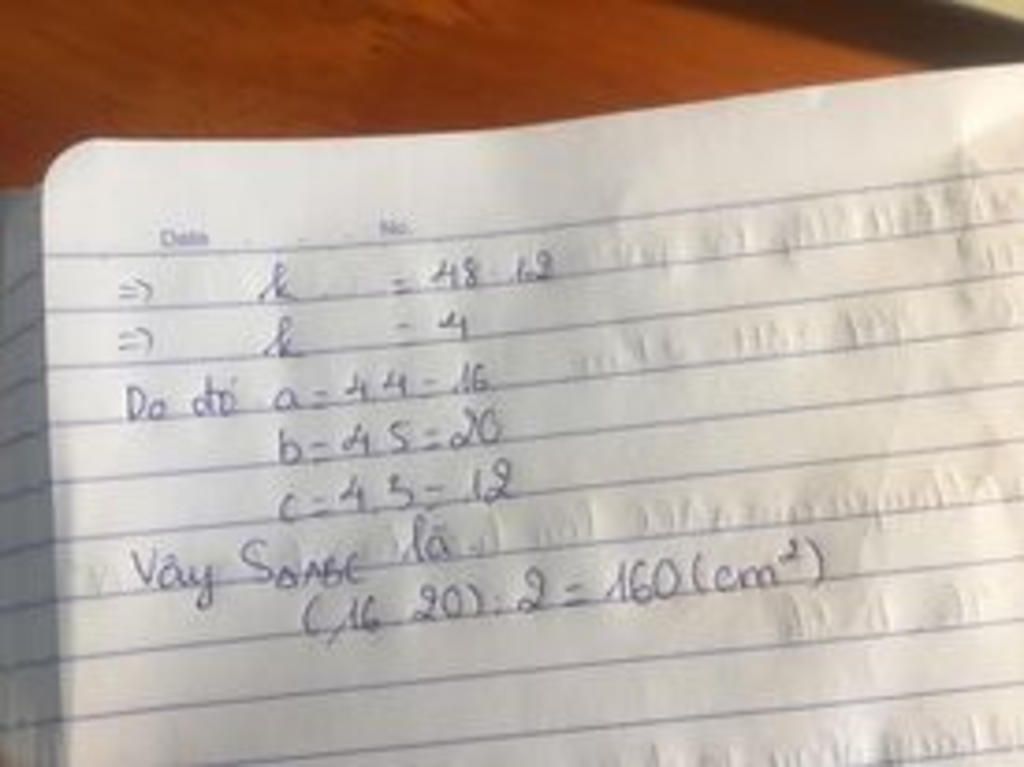 Date No.
=> k = 48 : 12
=> k = 4
Do đó a = 4.4 = 16
b = 4.5 = 20
c = 4.3 = 12
Vậy SΔABC là
(16.20) : 2 = 160 (cm²)